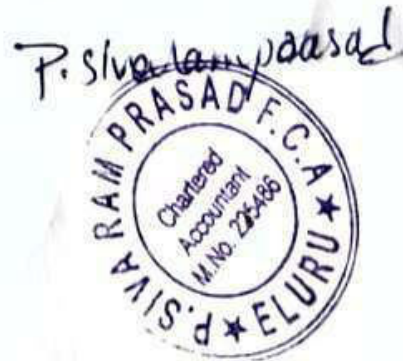 P. Sivaramprasad
P. SIVA RAM PRASAD F.C.A ★ ELURU ★
Chartered
Accountant
M.No. 225486